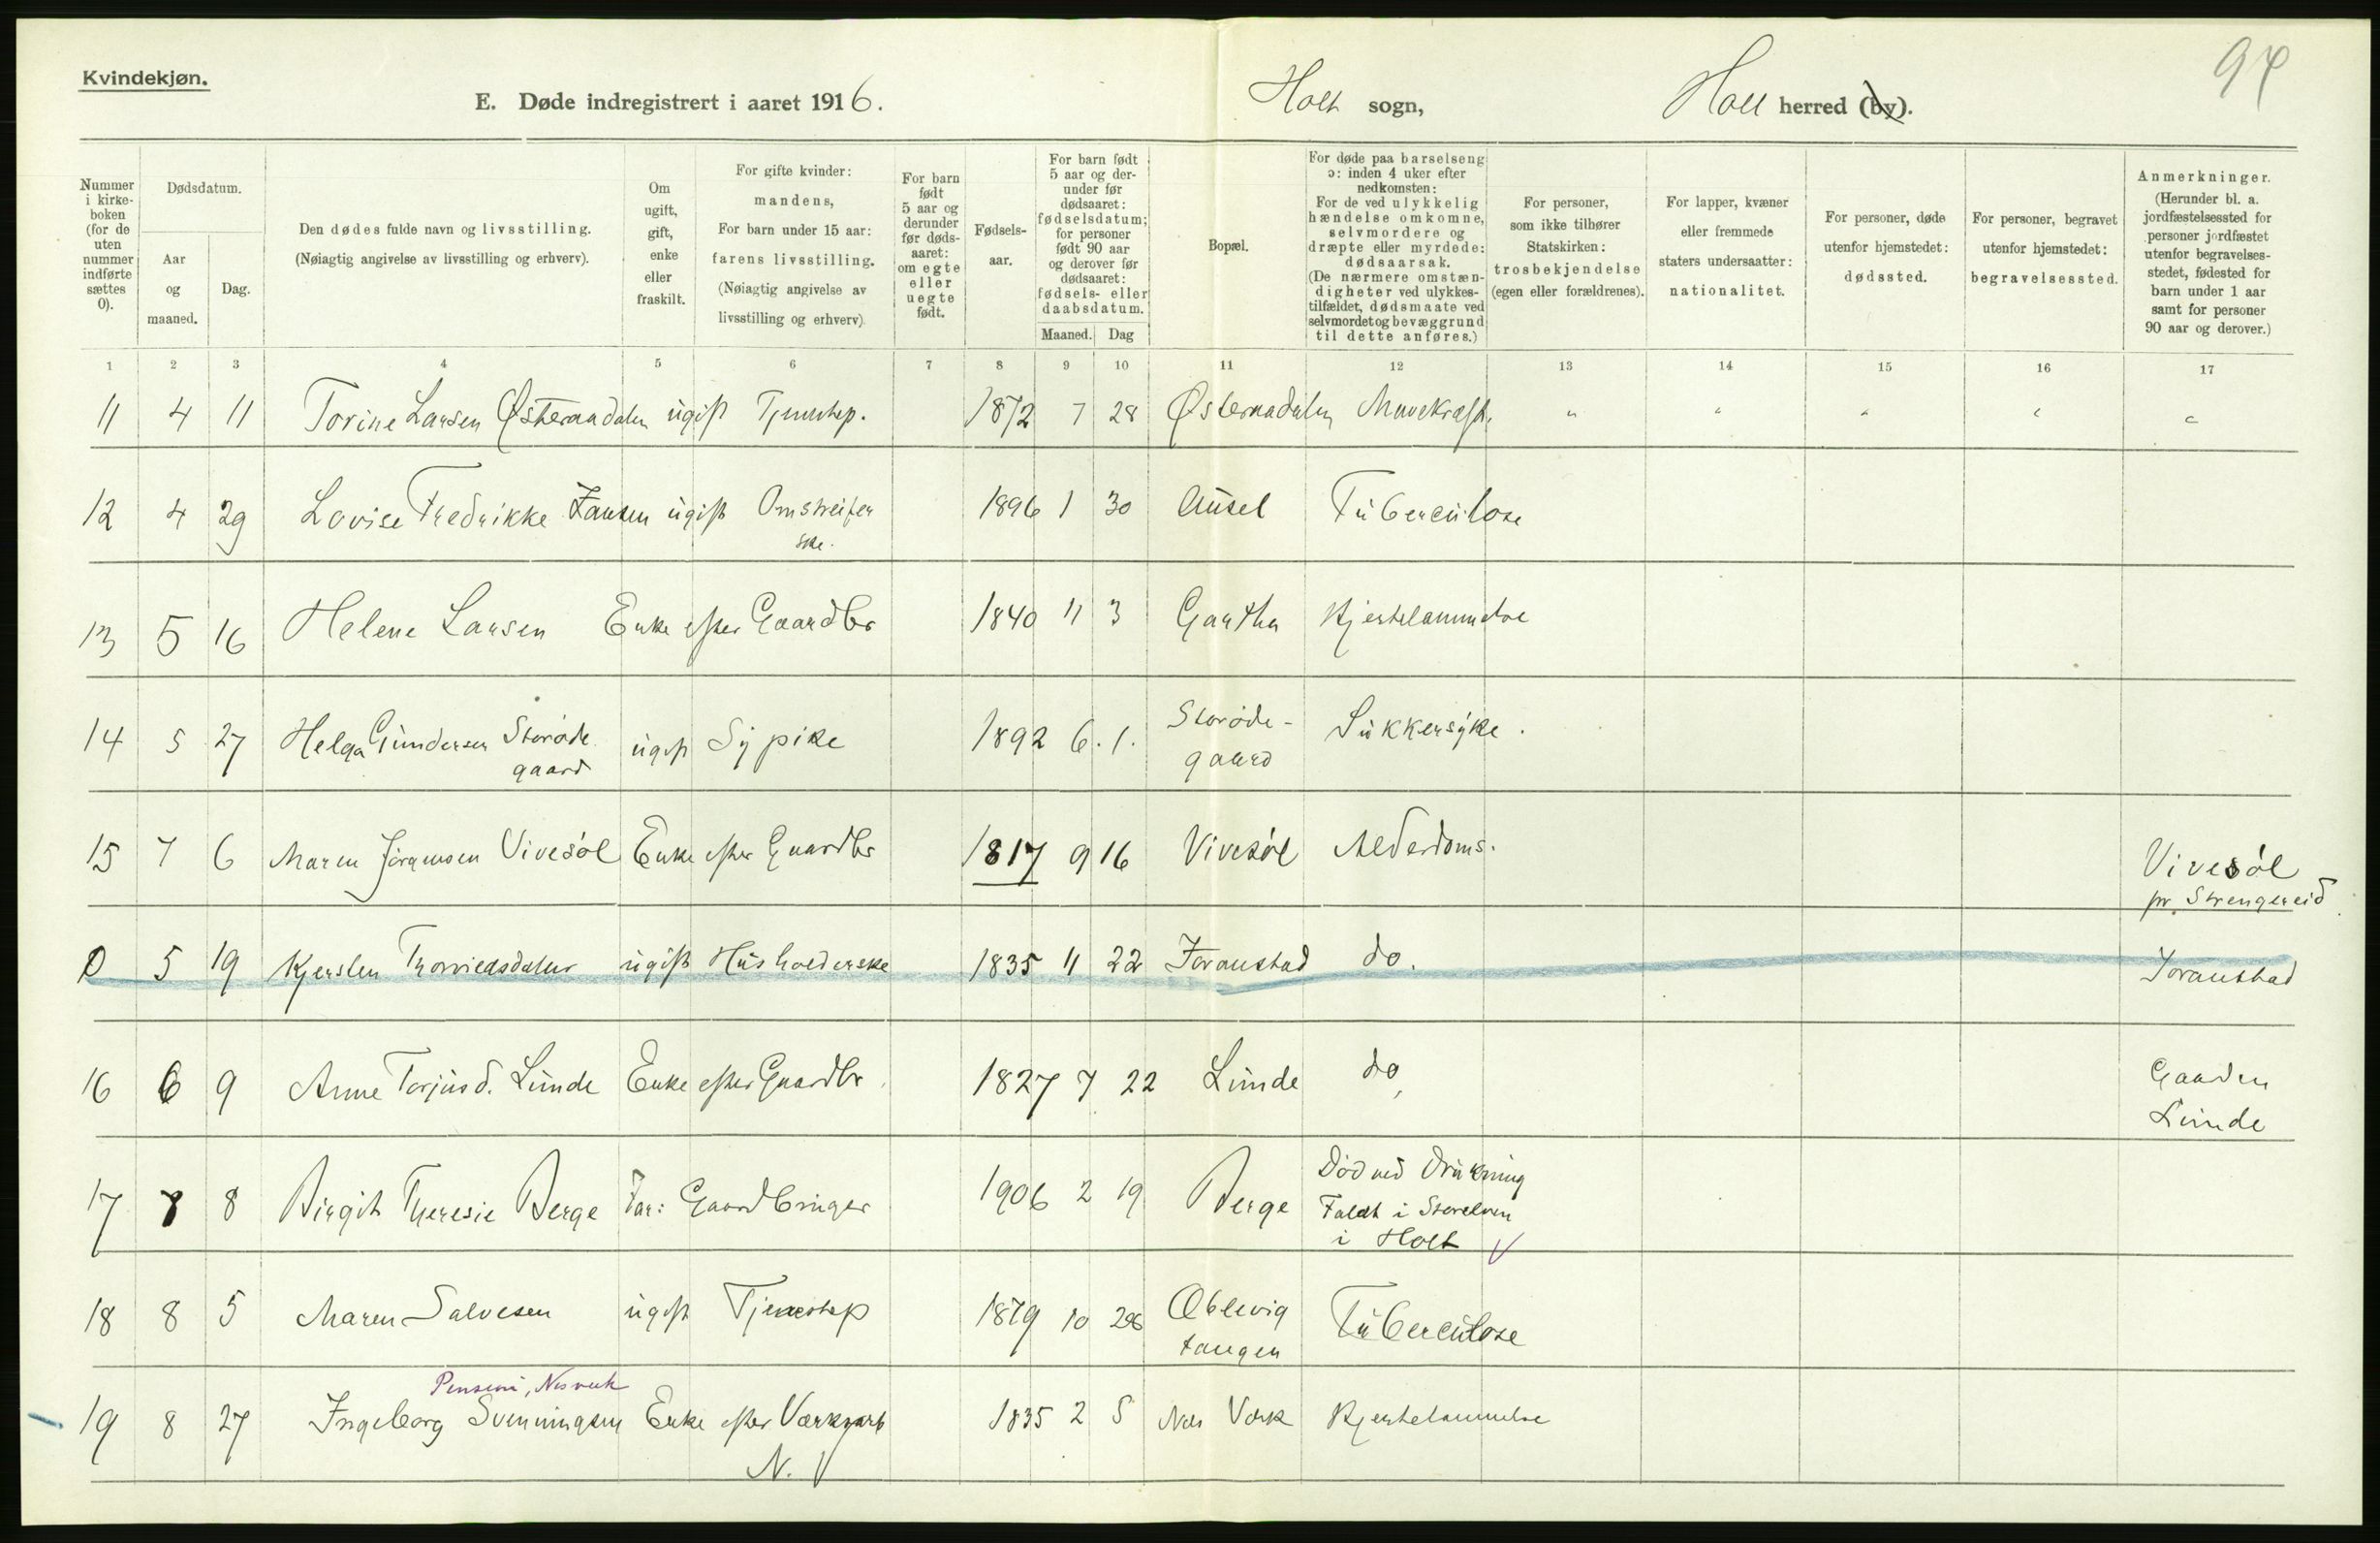 Kvindekjøn.
94
E. Døde indregistrert i aaret 1916.
Holt sogn,
Holt herred (by).
Nummer i kirke-boken (for de uten nummer indførte sættes 0).
Dødsdatum.
Aar og maaned.
Dag.
Den dødes fulde navn og livsstilling.
(Nøiagtig angivelse av livsstilling og erhverv).
Om ugift, gift, enke eller fraskilt.
For gifte kvinder: mandens, For barn under 15 aar: farens livsstilling. (Nøiagtig angivelse av livsstilling og erhverv)
For barn født 5 aar og derunder før døds-aaret: om egte eller uegte født.
Fødsels-aar.
For barn født 5 aar og der-under før dødsaaret: fødselsdatum; for personer født 90 aar og derover før dødsaaret: fødsels- eller daabsdatum.
Maaned.
Dag
Bopæl.
For døde paa barselseng ɔ: inden 4 uker efter nedkomsten: For de ved ulykkelig hændelse omkomne, selvmordere og dræpte eller myrdede: dødsaarsak. (De nærmere omstæn-digheter ved ulykkes-tilfældet, dødsmaate ved selvmordet og bevæggrund til dette anføres.)
For personer, som ikke tilhører Statskirken: trosbekjendelse (egen eller forældrenes).
For lapper, kvæner eller fremmede staters undersaatter: nationalitet.
For personer, døde utenfor hjemstedet: dødssted.
For personer, begravet utenfor hjemstedet: begravelsessted.
Anmerkninger. (Herunder bl. a. jordfæstelsessted for personer jordfæstet utenfor begravelses-stedet, fødested for barn under 1 aar samt for personer 90 aar og derover.)
1 2 3 4 5 6 7 8 9 10 11 12 13 14 15 16 17
11 4 11 Torine Larsen Østeraadalen ugift Tjenstep. 1872 7 28 Østeraadalen Mavekræft. " " " " "
12 4 29 Lovise Fredrikke Jansen ugift Omstreifer 1896 1 30 Ausel Tuberculose
ske.
13 5 16 Helene Larsen Enke efter Gaardbr 1840 11 3 Gartha Hjertelammelse
14 5 27 Helga Gundersen Storøde ugift Sypike 1892 6. 1. Storøde- Sukkersyke.
gaard gaard
15 7 6 Maren Jørgensen Vivesøl Enke efter Gaardbr 1817 9 16 Vivesøl Alderdoms. Vivesøl
pr. Strengereid
0 5 19 Kjersten ugift Husholderske 1835 11 22 Joranstad do. Joranstad
16 6 9 Anne Torjusd. Lunde Enke efter Gaardbr. 1827 7 22 Lunde do, Gaarden
Lunde
17 7 8 Birgit Theresie Berge Far: Gaardbruger 1906 2 19 Berge Død ved Drukning
Faldt i Storelven
i Holt V
18 8 5 Maren Salvesen ugift Tjenestep 1879 10 Oblevig Tuberculose
tangen
Pensein, Nesverk
19 8 27 Ingeborg Svenningsen Enke efter Værksarb 1835 2 5 Næs Værk Hjertelammelse
N. V